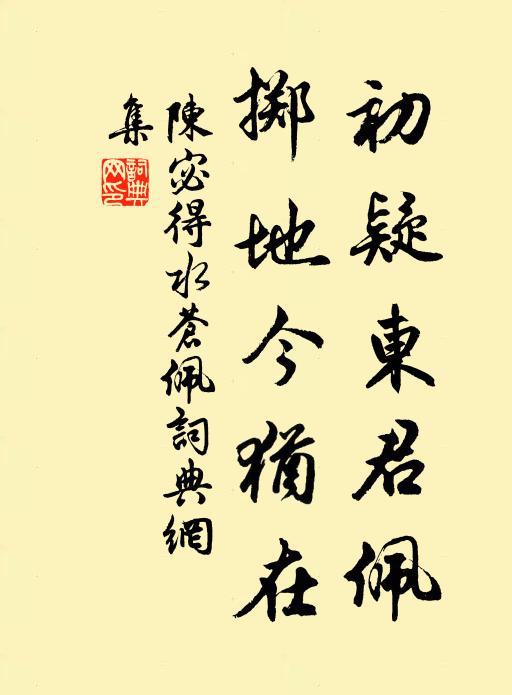 初疑東君佩
擲地今猶在
陳宓得水蒼佩詞典網
集
詞典網印